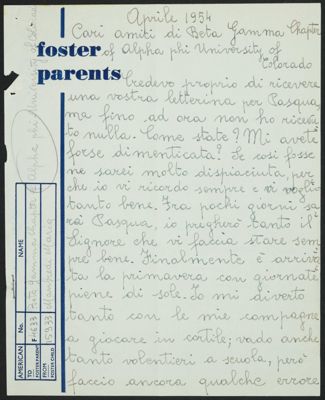 Aprile 1954
Cari amiti di Beta Gamma Chapter
of Alpha phi University of
Colorado
foster
parents
Credevo proprio di ricevere
una vostra letterina per Pasqua,
ma fino ad ora non ho ricevu
to nulla. Come state? Mi avete
forse dimenticata? Se così fosse
ne sarei molto dispiaciuta, per
chè io vi ricordo sempre e vi voglio
tanto bene. Fra pochi giorni sa
rà Pasqua, io pregherò tanto il
Signore che vi faccia stare sem
pre bene. Finalmente è arriva
ta la primavera con giornate
piene di sole. Io mi diverto
tanto con le mie compagne
a giocare in cortile; vado anche
tanto volentieri a scuola, però
faccio ancora qualche errore
Alpha phi University of
AMERICAN No. NAME
TO
FOSTER PARENT
4633 Beta Gamma Chapter of
FROM
FOSTER CHILD
Maria